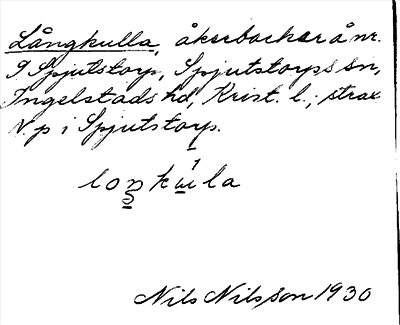 Långkulla, åkerbackar å nr.
9 Spjutstorp, Spjutstorps sn,
Ingelstads hd, Krist. l.; strax
N. p i Spjutstorp.
Nils Nilsson 1930